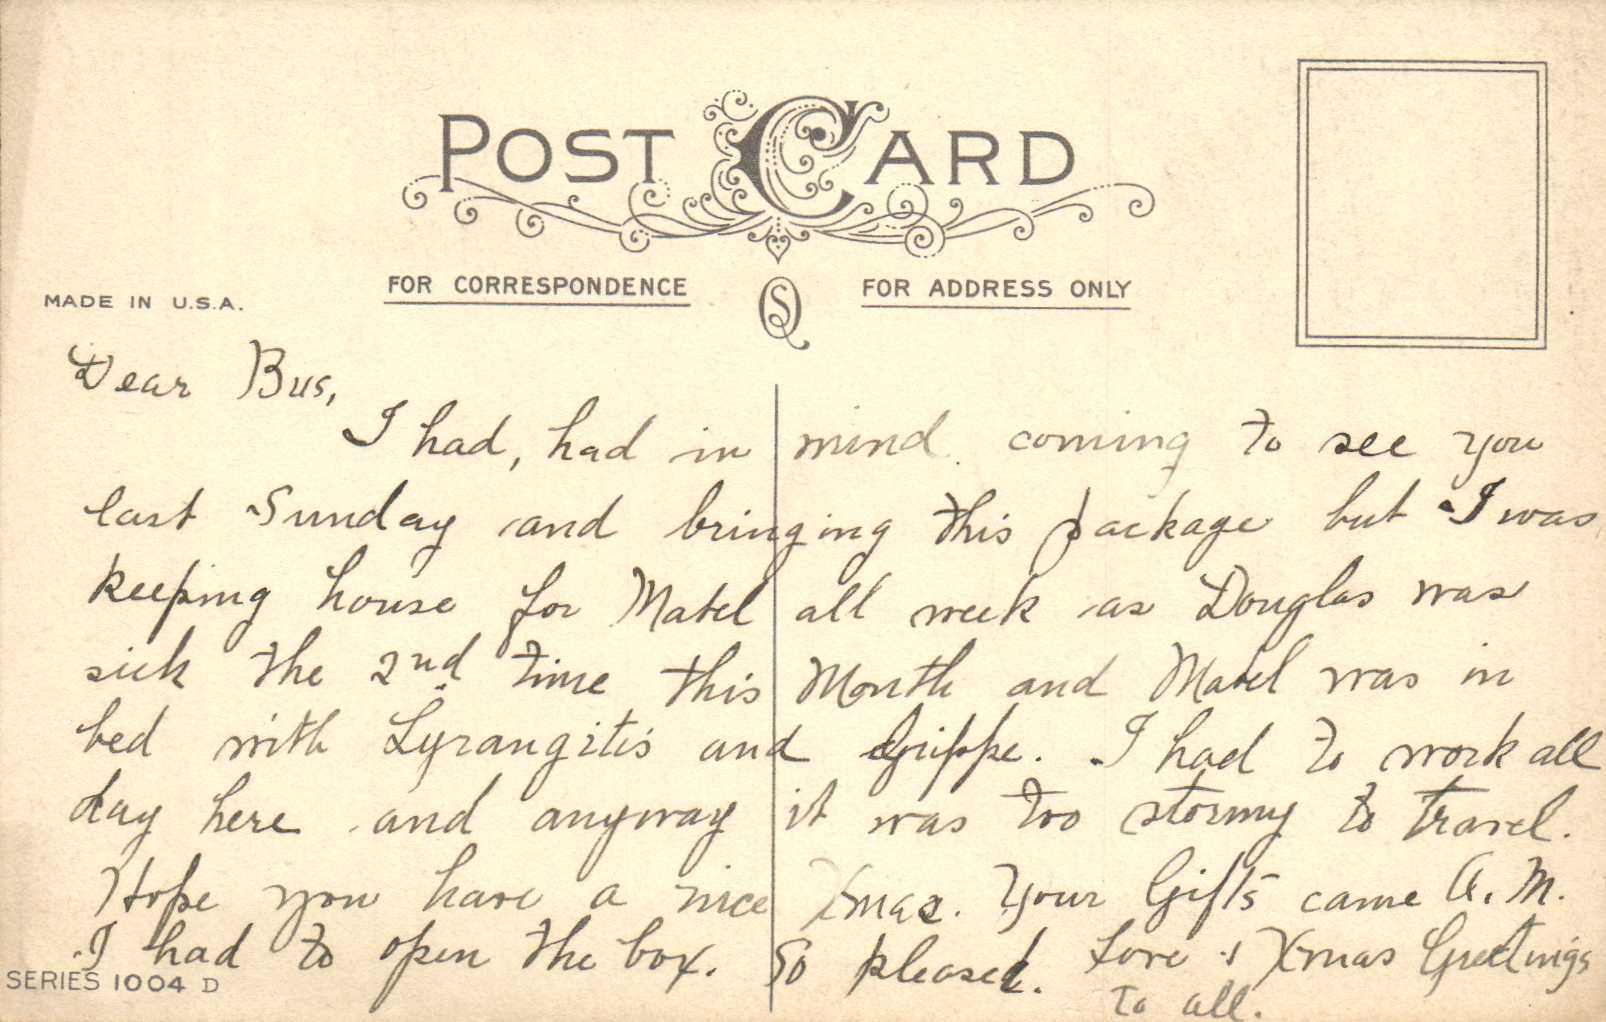 POST CARD
FOR CORRESPONDENCE
FOR ADDRESS ONLY
MADE IN U.S.A.
Dear Bus,
I had, had in mind coming to see you
last Sunday and bringing this package but I was
keeping house for Mabel all week as Douglas was
sick the 2nd time this Month and Mabel was in
bed with Lyrangitis and Grippe. I had to work all
day here and anyway it was too stormy to travel.
Hope you have a nice Xmas. Your Gifts came A.M.
I had to open the box. So pleased. Love & Xmas Greetings
to all.
SERIES 1004 D